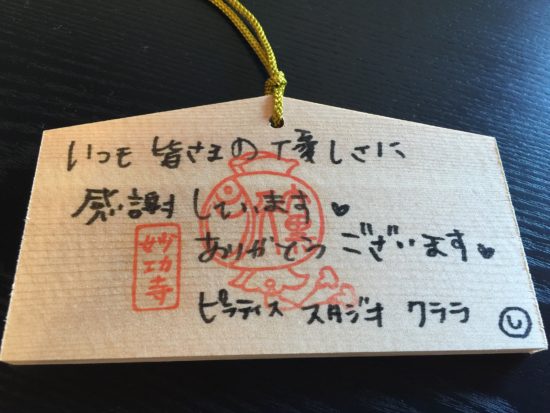 いつも皆さまの優しさに
感謝しています♥
ありがとう ございます♥
ピラティス スタジオ クララ
妙功寺